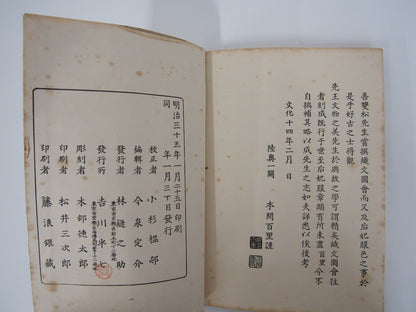 吾雙松先生嘗撰織文圖會而又及后妃服色之事於
是乎好古之士得觀
先王文物之美先生於典故之學可謂精矣織文圖會往
者刻成既行于世至后妃服章頗有所未盡百里今不
自揣補其略以成先生之志如夫詳悉以俟後考
文化十四年二月 日
陸奥一關 本間百里謹
明治三十五年一月二十五日印刷
同 年一月三十日發行
校正者 小杉榲邨
編輯者 今泉定介
發行者 林縫之助
發行所 吉川半七
彫刻者 本邨徳太郎
印刷者 松井三次郎
印刷者 藤浪銀藏